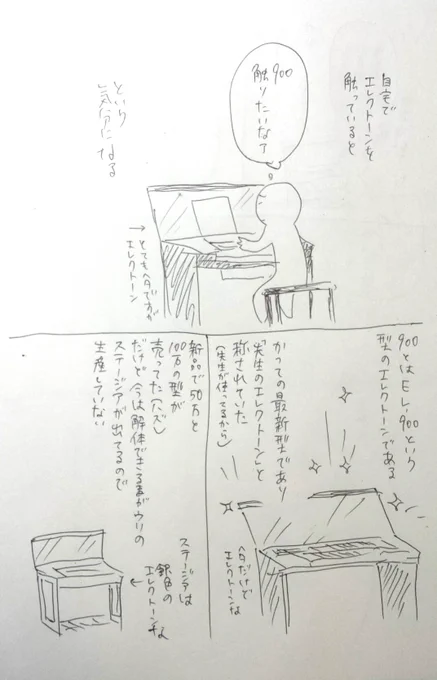 自宅で
エレクトーンを
触っていると
900
触りたいなア
という
気分になる
→とてもヘタですが
エレクトーン
900とはEL-900という
型のエレクトーンである
かつての最新型であり
「先生のエレクトーン」と
称されていた
(先生が使ってるから)
ヘタだけど
エレクトーンな
新品で50万と
100万の型が
売ってた(ハズ)
だけど今は解体できる事がウリの
ステージアが出てるので
生産していない
ステージアは
銀色の
エレクトーンな